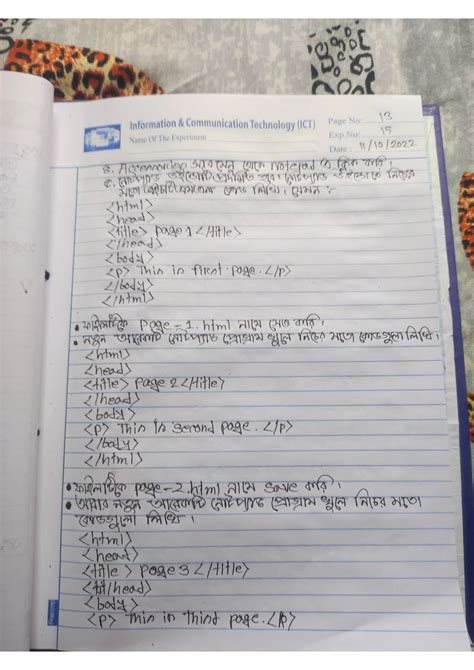 Information & Communication Technology (ICT)
Name Of The Experiment
Page No: 13
Exp.No: 15
Date : 11/10/2022
B. Accessories থেকে notepad এ ক্লিক করি।
C. নোটপ্যাড উইন্ডোটি হবে। নোটপ্যাড উইন্ডোতে নিচের
মতো কোড লিখি। যেমন :-
<html>
<head>
<title> page 1 </title>
</head>
<body>
<p> This is first page. </p>
</body>
</html>
• ফাইলটিকে page-1.html নামে সেভ করি।
• নতুন আরেকটি নোটপ্যাড প্রোগ্রাম খুলে নিচের মতো কোডগুলো লিখি।
<html>
<head>
<title> page 2 </title>
</head>
<body>
<p> This is second page. </p>
</body>
</html>
• ফাইলটিকে page-2.html নামে save করি।
• আবার নতুন আরেকটি নোটপ্যাড প্রোগ্রাম খুলে নিচের মতো
কোডগুলো লিখি।
<html>
<head>
<title> page 3 </title>
</head>
<body>
<p> This is third page. </p>